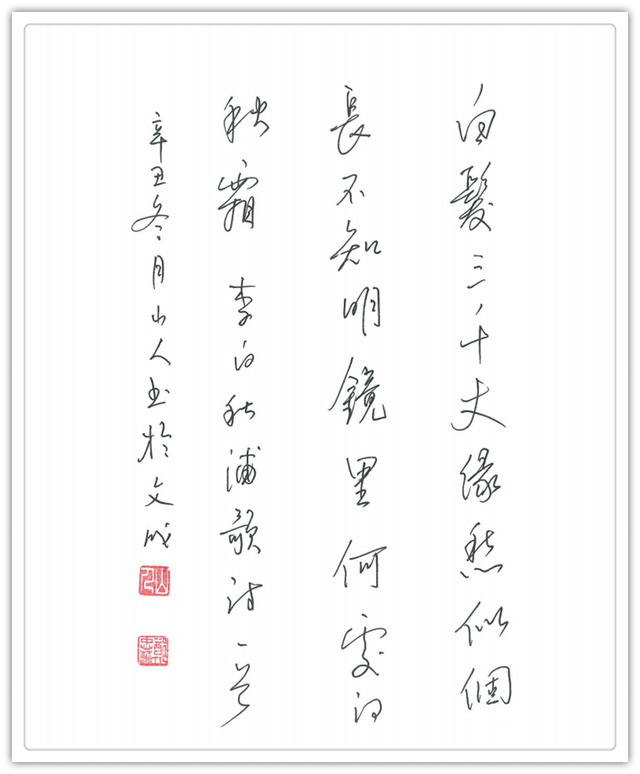 白髮三千丈缘愁似個
長不知明鏡里何處得
秋霜 李白秋浦歌诗一首
辛丑冬月山人书於文成
山人